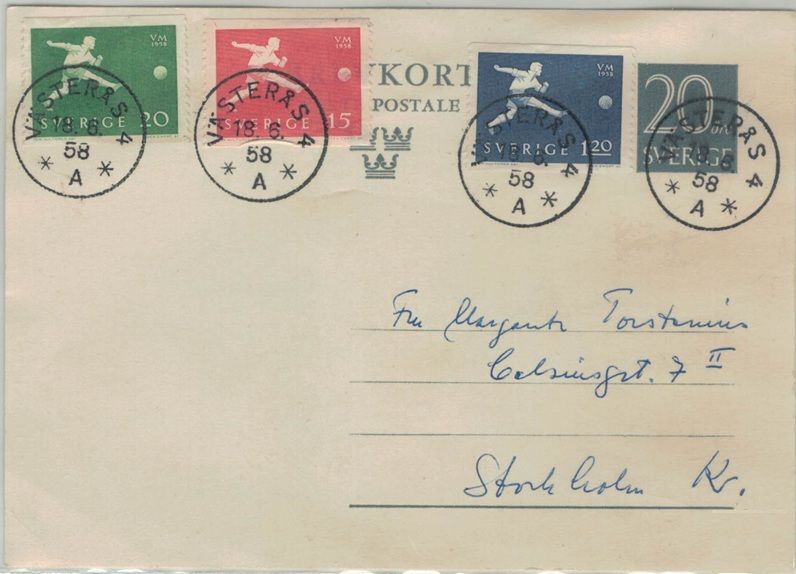 VM
1958
SVERIGE 20
VM
1958
SVERIGE 15
VKORT
POSTALE
VM
1958
SVERIGE 1.20
20 öre
SVERIGE
VÄSTERÅS 4
18.6.
58
* A *
VÄSTERÅS 4
18.6.
58
* A *
VÄSTERÅS 4
18.6.
58
* A *
VÄSTERÅS 4
18.6
58
* A *
Fru Torstenius
Celsiusgt. 7 II
Stockholm Kv.